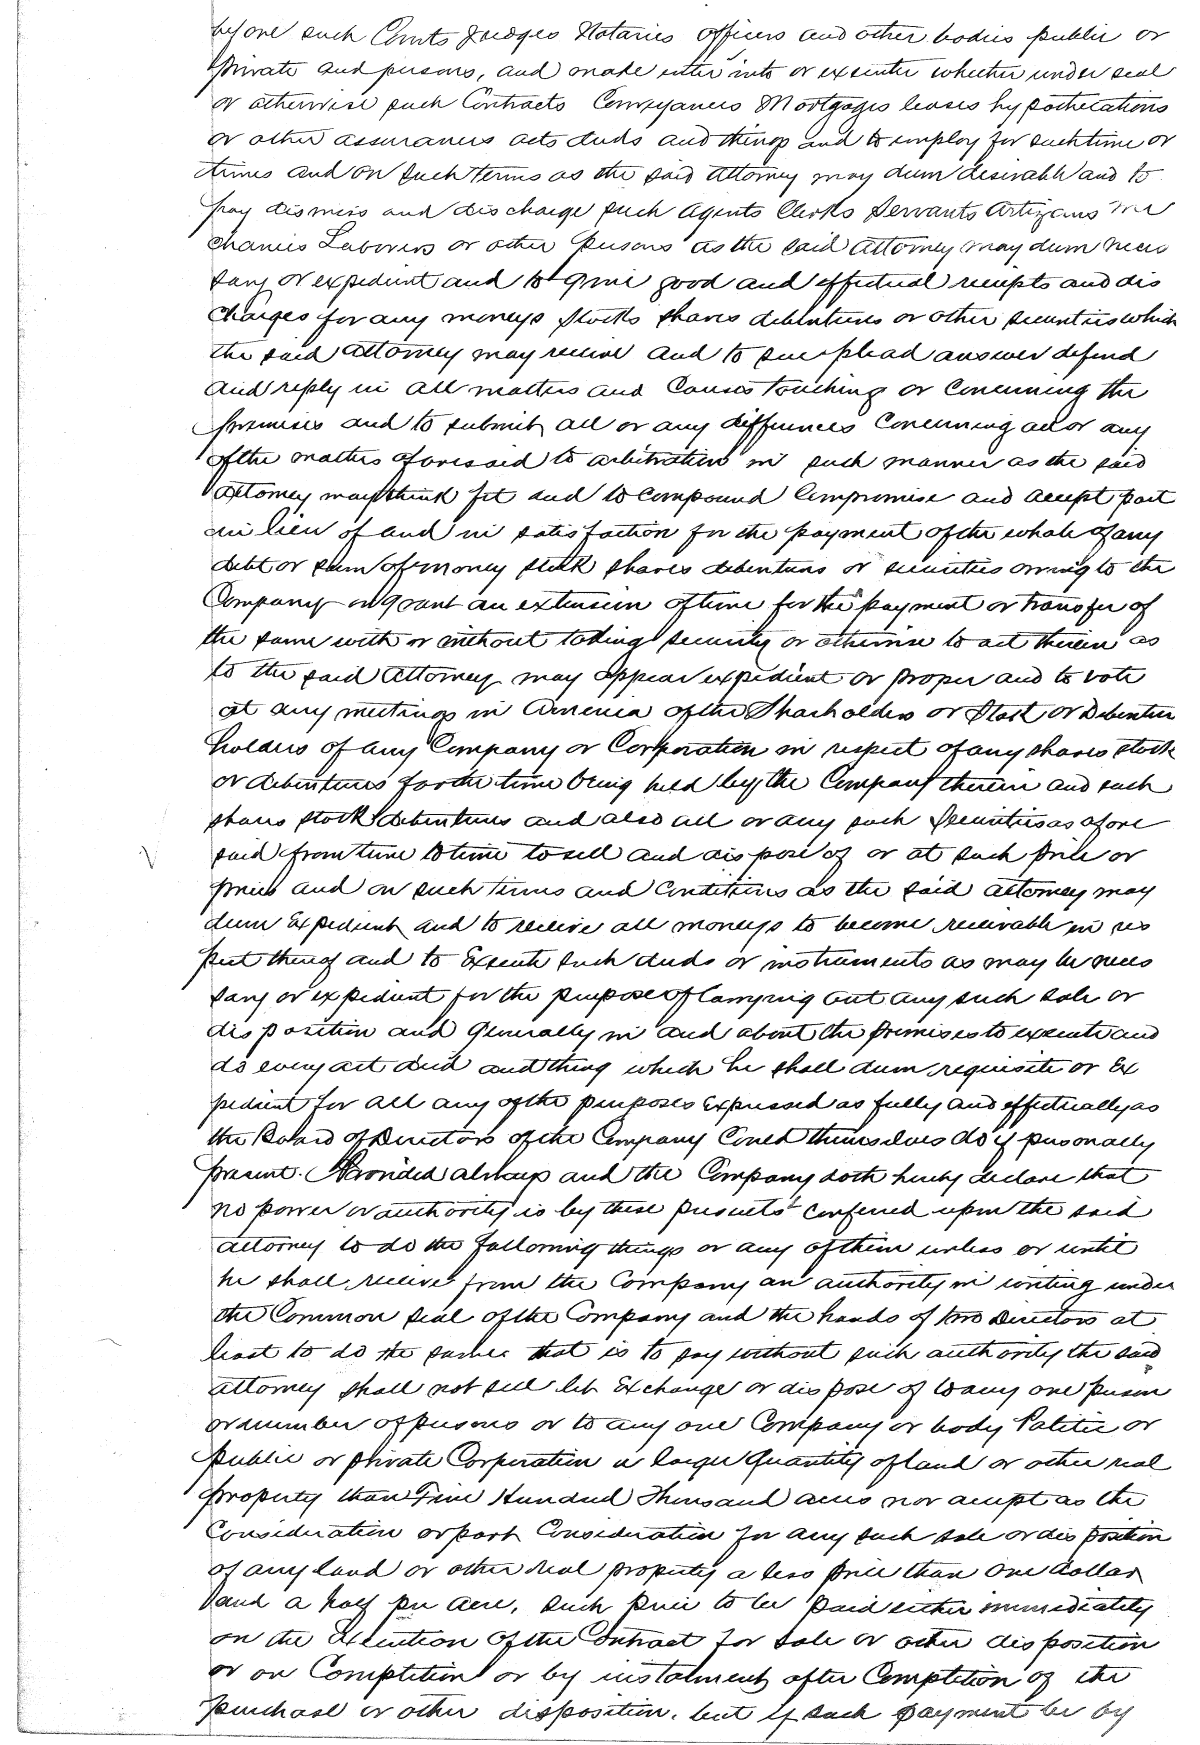 before such Courts Judges Notaries officers and other bodies public or
private and persons, and made enter into or execute whether under seal
or otherwise such Contracts Conveyances Mortgages leases hypothecations
or other assurances acts deeds and things and to employ for such time or
times and on such terms as the said Attorney may deem desirable and to
pay dismiss and discharge such Agents Clerks Servants Artizans Me
chanics Laborers or other persons as the said Attorney may deem neces
sary or expedient and to give good and effectual receipts and dis
charges for any moneys stocks shares debentures or other securities which
the said Attorney may receive and to sue plead answer defend
and reply in all matters and causes touching or concerning the
premises and to submit all or any differences concerning all or any
of the matters aforesaid to arbitration in such manner as the said
Attorney may think fit and to compound compromise and accept part
in lieu of and in satisfaction for the payment of the whole of any
debt or sum of money stock shares debentures or securities owing to the
Company or grant an extension of time for the payment or transfer of
the same with or without taking security or otherwise to act therein as
to the said Attorney may appear expedient or proper and to vote
at any meetings in America of the Shareholders or Stock or Debenture
holders of any Company or Corporation in respect of any shares stock
or debentures for the time being held by the Company therein and such
shares stock debentures and also all or any such Securities as afore
said from time to time to sell and dispose of or at such price or
prices and on such terms and conditions as the said attorney may
deem Expedient and to receive all moneys to become receivable in res
pect thereof and to Execute such deeds or instruments as may be neces
sary or expedient for the purpose of carrying out any such sale or
disposition and Generally in and about the premises to execute and
do every act deed and thing which he shall deem requisite or Ex
pedient for all any of the purposes Expressed as fully and effectually as
the Board of Directors of the Company Could themselves do if personally
present. Provided always and the Company doth hereby declare that
no power or authority is by these presents conferred upon the said
attorney to do the following things or any of them unless or until
he shall receive from the Company an authority in writing under
the Common seal of the Company and the hands of two Directors at
least to do the same that is to say without such authority the said
attorney shall not sell let Exchange or dispose of to any one person
or number of persons or to any one Company or body Politic or
public or private Corporation a larger Quantity of land or other real
property than Five Hundred Thousand acres nor accept as the
Consideration or part Consideration for any such sale or disposition
of any land or other real property a less price than one dollar
and a half per acre, such price to be paid either immediately
on the Execution of the Contract for sale or other disposition
or on Completion or by instalments after Completion of the
purchase or other disposition, but if such payment be by